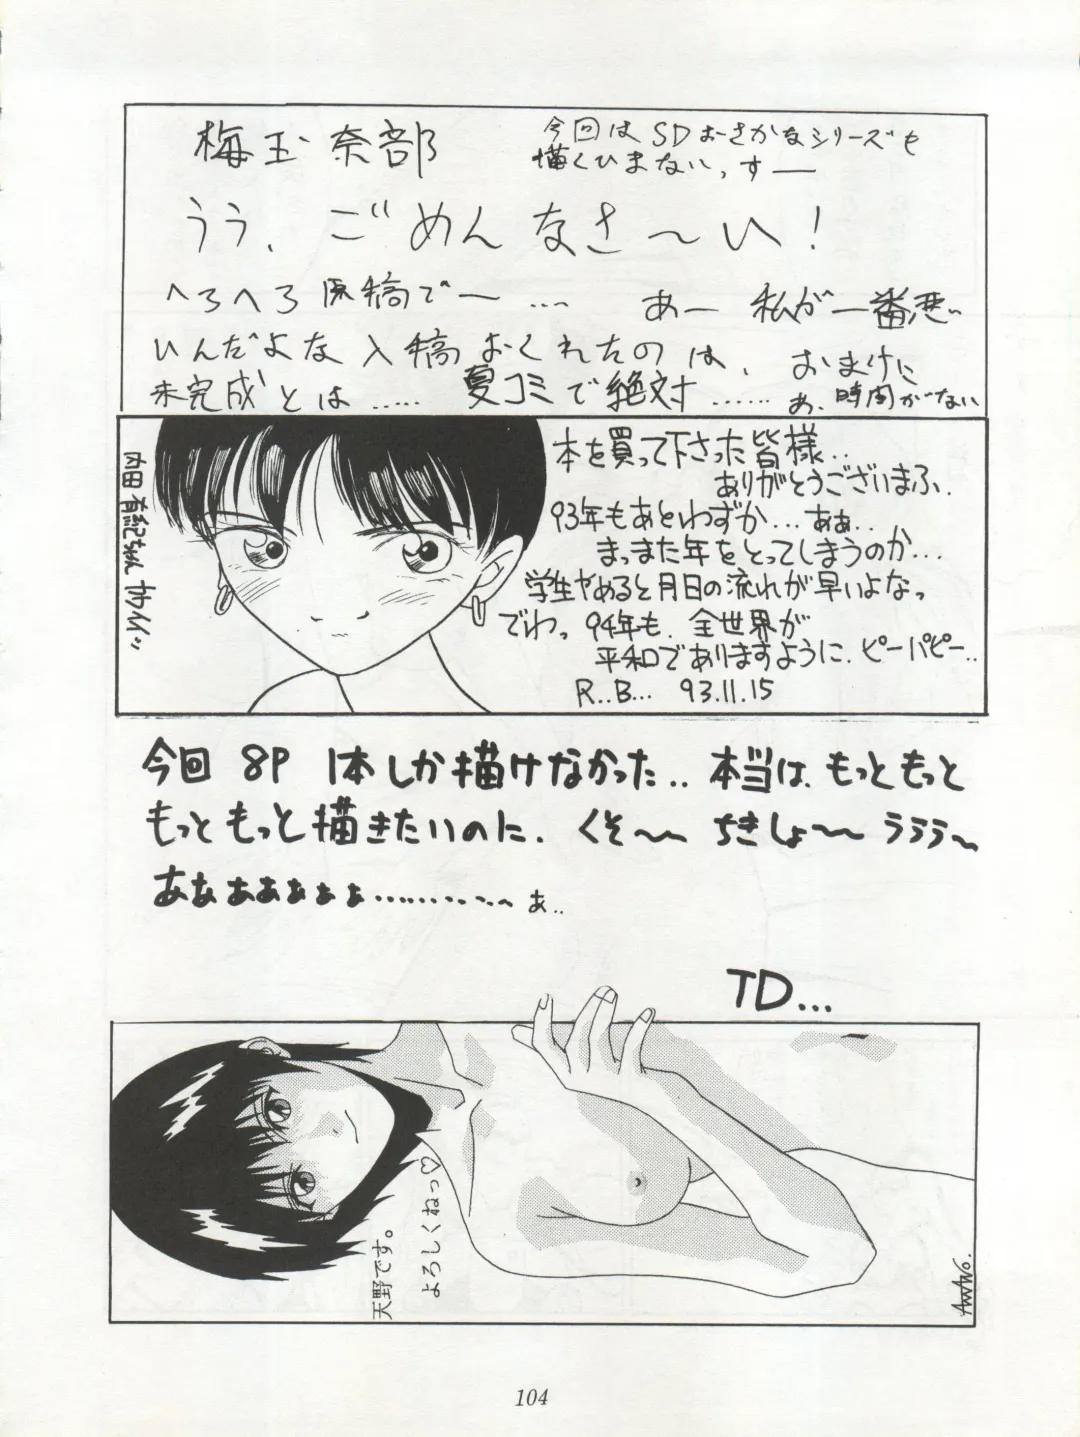 梅玉奈部
今回はSDおさかなシリーズも
描くひまないっすー
うう、ごめんなさ〜い!
へろへろ原稿でー....
あー 私が一番悪
いんだよな入稿おくれたのは、
おまけに
未完成とは..... 夏コミで絶対......
あ、時間がない
内田有紀ちゃんカワイイ
本を買って下さった皆様..
ありがとうございまふ.
93年もあとわずか...ああ..
まったまた年をとってしまうのか...
学生やめると月日の流れが早いよなっ
でわっ 94年も、全世界が
平和でありますように. ピーパピー..
R..B... 93.11.15
今回 8P 1本しか描けなかった.. 本当は、もっともっと
もっともっと描きたいのに. くそ〜 ちきしょ〜 ううう〜
あぁぁぁぁぁぁ............ ぁ..
TD...
天野です。
よろしくねっ♡
AMANO.
104